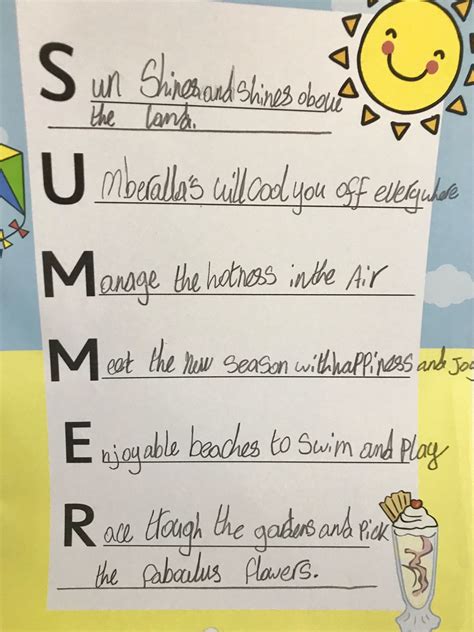 Sun Shines and shines above
the land.
Umberalla's will Cool you off everywhere
Manage the hotness in the Air
Meet the new season with happiness and Joy
Enjoyable beaches to Swim and Play
Race trough the gardens and Pick
the fabaulus flowers.